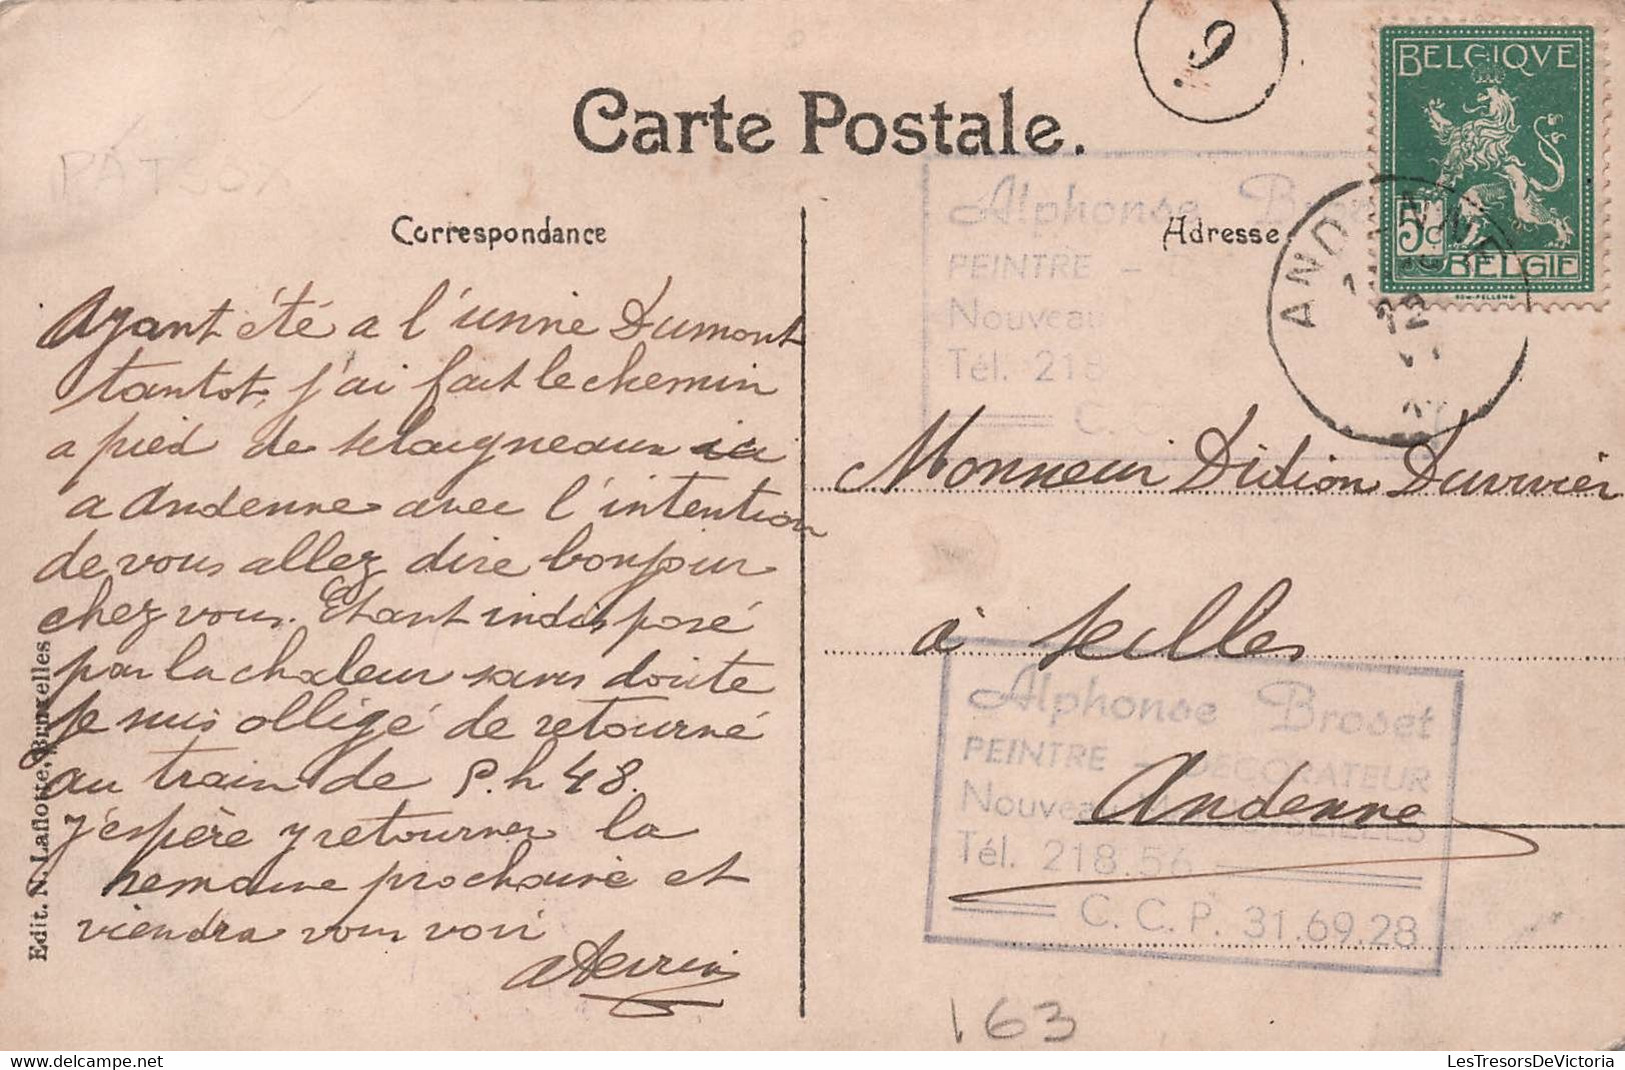 9
Carte Postale.
BELGIQVE
5c
BELGIE
ANDENNE
12
PATSOX
Correspondance
Adresse
Alphonse Bro
PEINTRE –
Nouveau
Tél. 218
C. C.
Ayant été a l'usine Dumont
tantot, j'ai fait le chemin
a pied de sclaigneaux ici
a Andenne avec l'intention
de vous allez dire bonjour
chez vous. Etant indisposé
par la chaleur sans doute
je suis obligé de retourné
au train de 5.h 48.
J'espère y retourner la
semaine prochaine et
viendra vous voir
Monsieur Didion Duvivier
à Seilles
Andenne
Alphonse Broset
PEINTRE – DECORATEUR
Nouveau
Tél. 218.56
C. C. P. 31.69.28
Edit. N. Laflotte, Bruxelles
163
LesTresorsDeVictoria